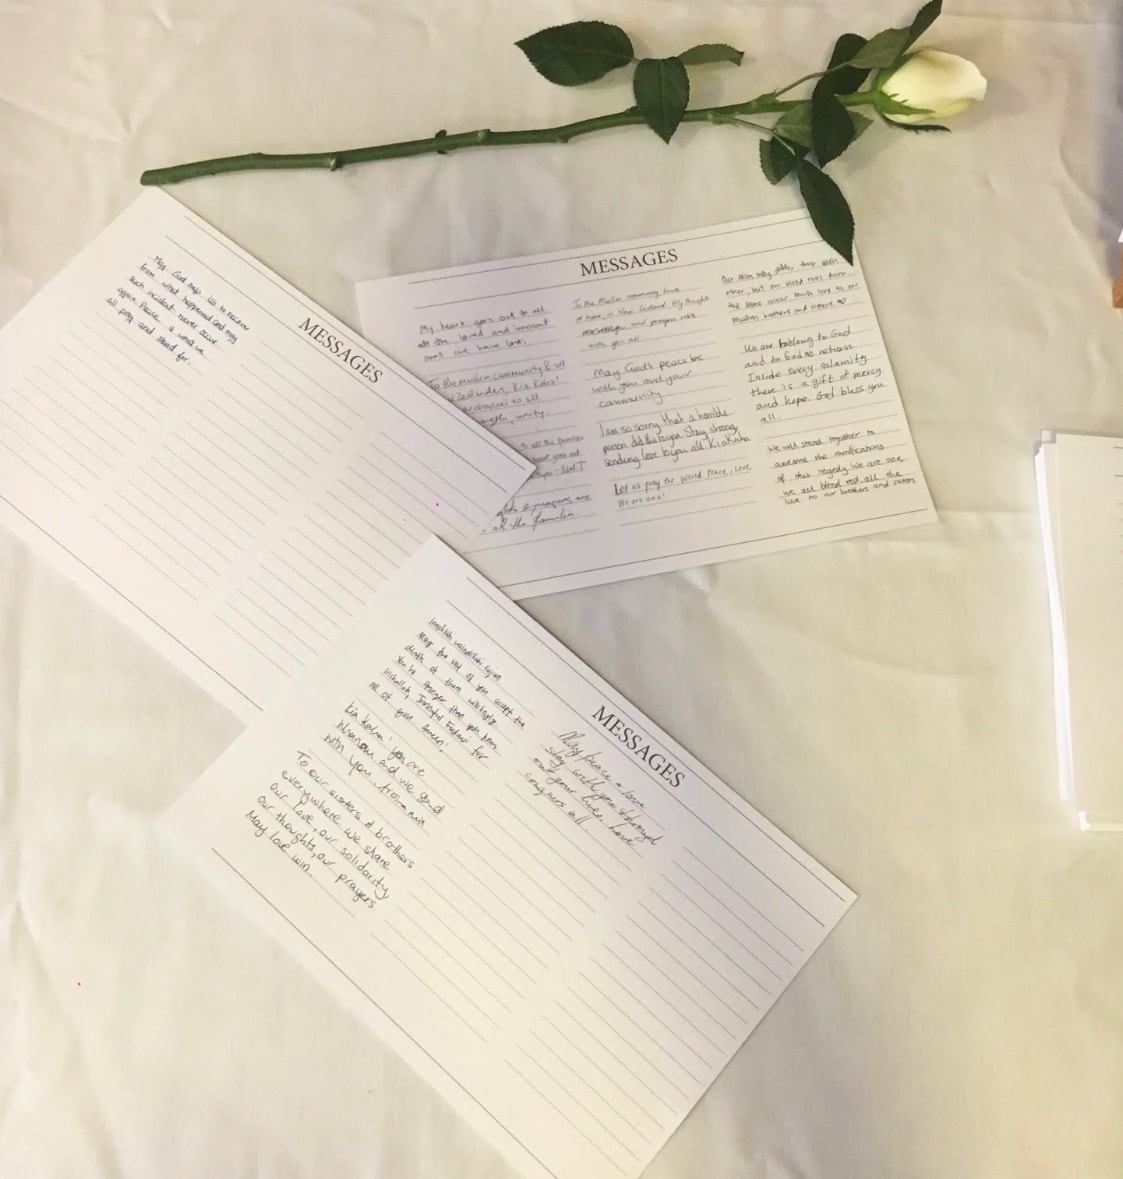 MESSAGES
May God help us to recover
from what happened and may
such incident never occur
again. Peace is what we
all pray and stand for.
MESSAGES
My heart goes out to all
the loved and innocent
ones we have lost.
To the muslim community & all
Kia Kaha!
to all
unity.
to all the families
goes out
& prayers are
all the families.
To the Muslim community here
at home, in New Zealand. My thoughts
and prayers are
with you all
May God's peace be
with you and your
community
I am so sorry that a horrible
person did this to you. Stay strong
sending love to you all Kia Kaha
Let us pray for World Peace, Love
We are one!
Our skin may
other, but our blood runs
the same colour much love to our
Muslim brothers and sisters
We are belong to God
and to God we return
Inside every calamity
there is a gift of mercy
and hope. God bless you
all.
We will stand together to
overcome the ramifications
of this tragedy We are one,
we all bleed red, all the
love to our brothers and sisters
MESSAGES
May the rest of you accept the
death of them willingly
You're stronger than you know
Inshallah, for
all of you
Kia Kaha! You are
and we stand
with you.
To our sisters & brothers
everywhere we share
our love, our solidarity
our thoughts, our prayers.
May love win.
May peace & love
stay with you through
out your lives. Love
conquers all.